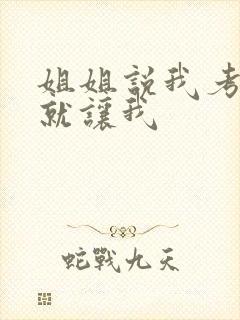 姐姐説我考
就讓我
蛇戰九天